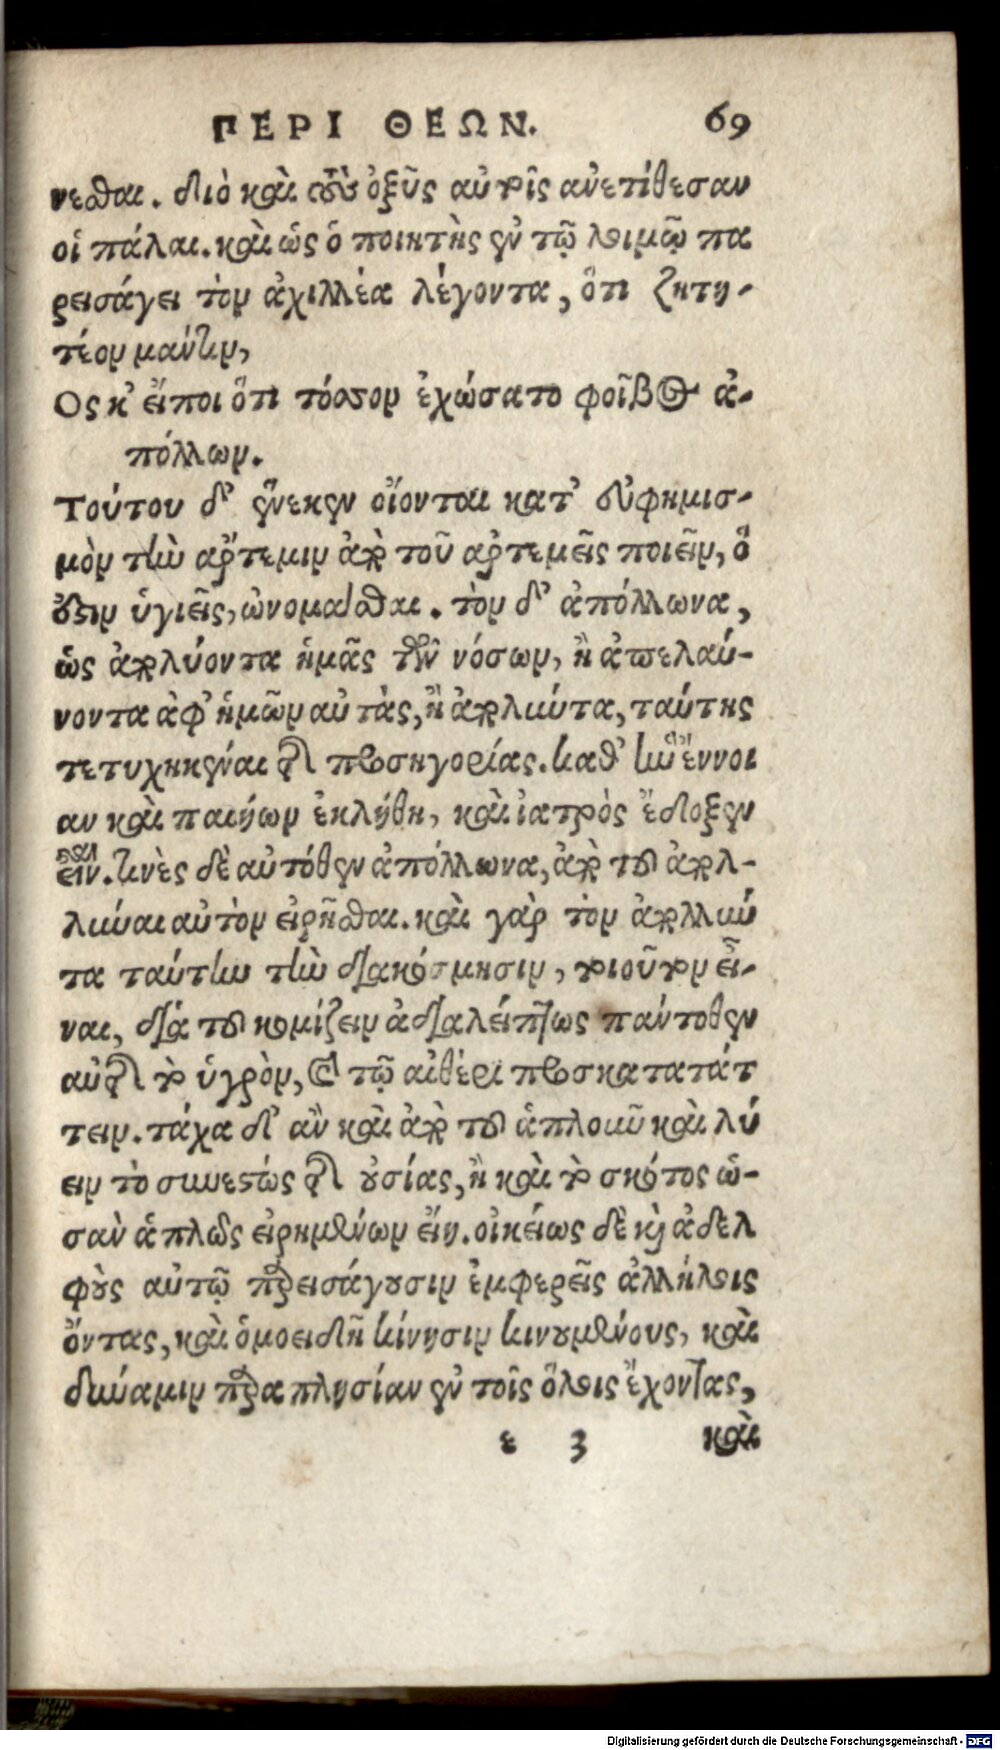 ΠΕΡΙ ΘΕΩΝ. 69
νεσθαι. διὸ καὶ τοὺς ὀξεῖς αὐτοῖς ἀνετίθεσαν
οἱ πάλαι. καὶ ὡς ὁ ποιητὴς ἐν τῷ λοιμῷ πα
ρεισάγει τὸν ἀχιλλέα λέγοντα, ὅτι ζητη-
τέον μαντιν,
Ος κ' εἴποι ὅτι τόσσον ἐχώσατο φοῖβος ἀ-
πόλλων.
Τούτου δ' ἕνεκεν οἴονται κατ' εὐφημισ-
μὸν τὴν ἄρτεμιν ἀπὸ τοῦ ἀρτεμεῖς ποιεῖν, ὅ
ἐστιν ὑγιεῖς, ὠνομάσθαι. τὸν δ' ἀπόλλωνα,
ὡς ἀπολύοντα ἡμᾶς τῶν νόσων, ἢ ἀπελαύ-
νοντα ἀφ' ἡμῶν αὐτὰς, ἢ ἀπολλύντα, ταύτης
τετυχηκέναι τῆς προσηγορίας. καθ' ἣν ἔννοι
αν καὶ παιήων ἐκλήθη, καὶ ἰατρὸς ἔδοξεν
εἶν. τινὲς δὲ αὐτόθεν ἀπόλλωνα, ἀπὸ τοῦ ἀπολ-
λύναι αὐτὸν εἰρῆσθαι. καὶ γὰρ τὸν ἀπολλύν
τα ταύτην τὴν διακόσμησιν, τοιοῦτον εἶ-
ναι, διὰ τοῦ κομίζειν ἀδιαλείπτως παντοθεν
αὐτῆς τὸ ὑγρὸν, καὶ τῷ αἰθέρι προσκατατάτ
τειν. τάχα δ' ἂν καὶ ἀπὸ τοῦ ἁπλοῦν καὶ λύ
ειν τὸ συνεστώς τῆς οὐσίας, ἢ καὶ τὸ σκότος ὡ-
σὰν ἁπλῶς εἰρημένων εἴη. οἰκείως δὲ καὶ ἀδελ
φοὺς αὐτῷ παρεισάγουσιν ἐμφερεῖς ἀλλήλοις
ὄντας, καὶ ὁμοειδῆ κίνησιν κινουμένους, καὶ
δύναμιν παραπλησίαν ἐν τοῖς ὅλοις ἔχοντας,
ε 3 καὶ
Digitalisierung gefördert durch die Deutsche Forschungsgemeinschaft - DFG